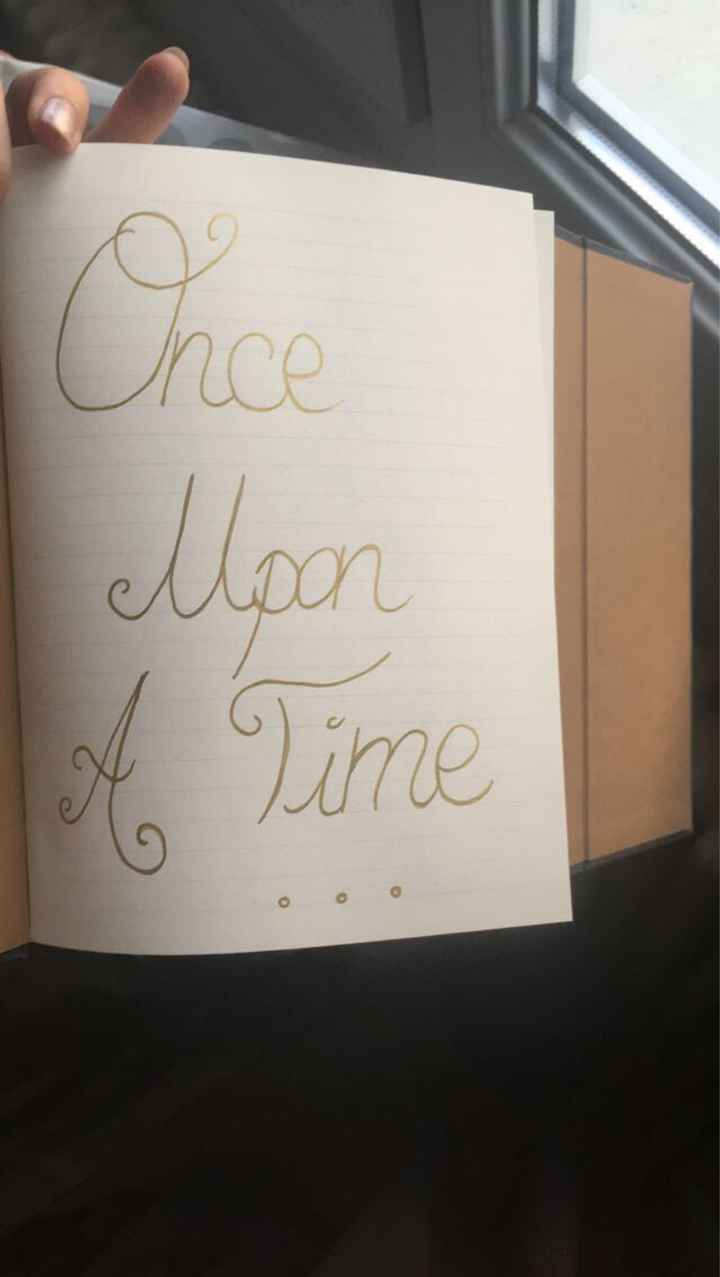 Once
Upon
A Time
...